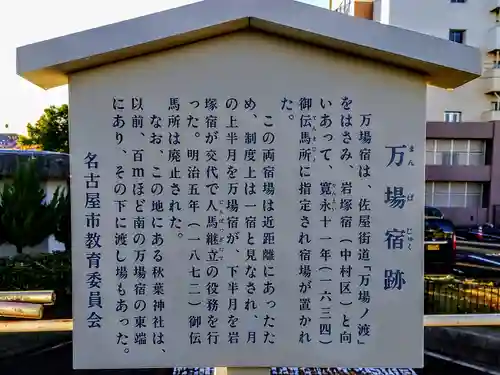 万場宿跡
まんばじゅくあと
万場宿は、佐屋街道「万場ノ渡」
をはさみ、岩塚宿（中村区）と向
いあって、寛永十一年（一六三四）
かんえい
御伝馬所に指定され宿場が置かれ
た。
この両宿場は近距離にあったた
め、制度上は一宿と見なされ、月
の上半月を万場宿が、下半月を岩
塚宿が交代で人馬継立の役務を行
った。明治五年（一八七二）御伝
馬所は廃止された。
なお、この地にある秋葉神社は、
以前、百mほど南の万場宿の東端
にあり、その下に渡し場もあった。
名古屋市教育委員会